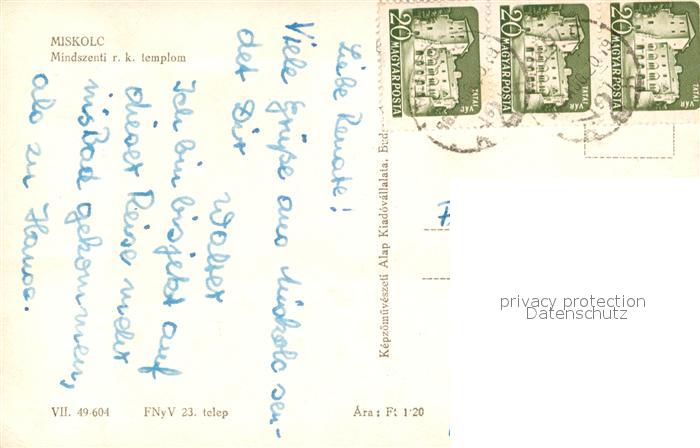 MISKOLC
Mindszenti r. k. templom
Liebe Renate!
Viele Grüße aus Miskolc sen-
det Dir
Walter
Ich bin bis jetzt auf
dieser Reise mehr
ins Bad gekommen,
als zu Hause.
VII. 49-604 FNyV 23. telep Ára: Ft 1·20
Képzőművészeti Alap Kiadóvállalata, Budap
20
MAGYAR POSTA
TATAI VÁR
20
MAGYAR POSTA
TATAI VÁR
20
MAGYAR POSTA
TATAI VÁR
privacy protection
Datenschutz